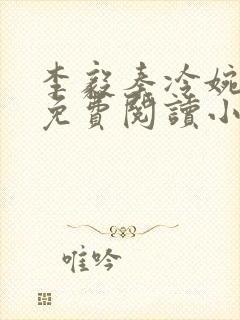 李毅秦冷婉
免費閱讀小
唯吟